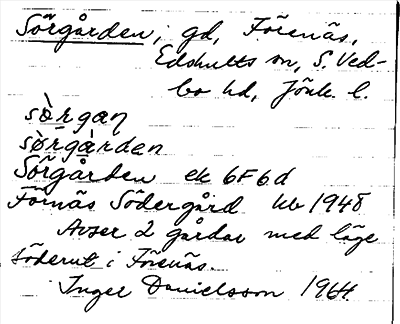 Sörgården, gd, Förenäs,
Edshults sn, S. Ved-
bo hd, Jönk. l.
sö̀rgaṇ
sö̀rgàrden
Sörgården ek 6F6d
Förnäs Södergård kb 1948
Avser 2 gårdar med läge
söderut i Förenäs.
Inger Danielsson 1964.